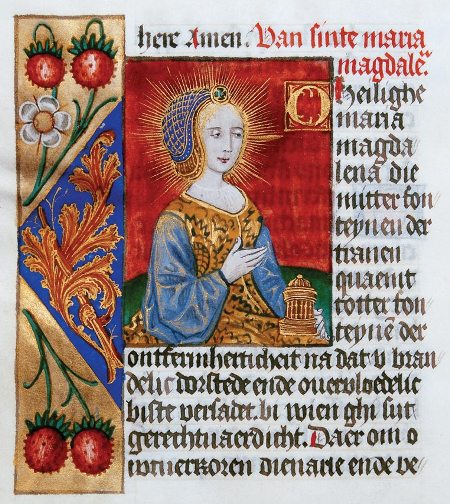 here Amen. Van sinte maria
magdalē.
O Heilighe
maria
magda
lena die
mitter fon
teynen der
tranen
quaemt
totter fon
teynē der
ontfermherticheit na dat u bran
delic dorstede ende overvloedelic
biste versadet. bi wien ghi sijt
gerechtvaerdicht. Daer om o
wtverkoren dienarie ende be